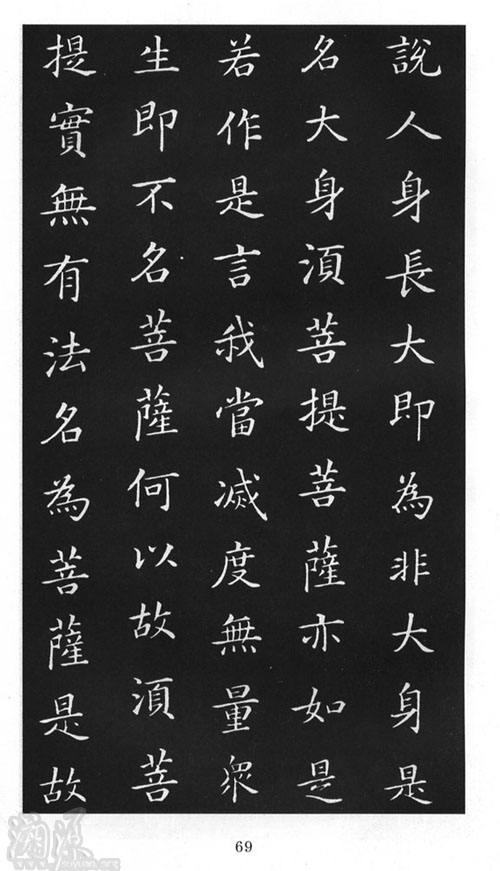 說人身長大即為非大身是
名大身湏菩提菩薩亦如是
若作是言我當滅度無量眾
生即不名菩薩何以故湏菩
提實無有法名為菩薩是故
69